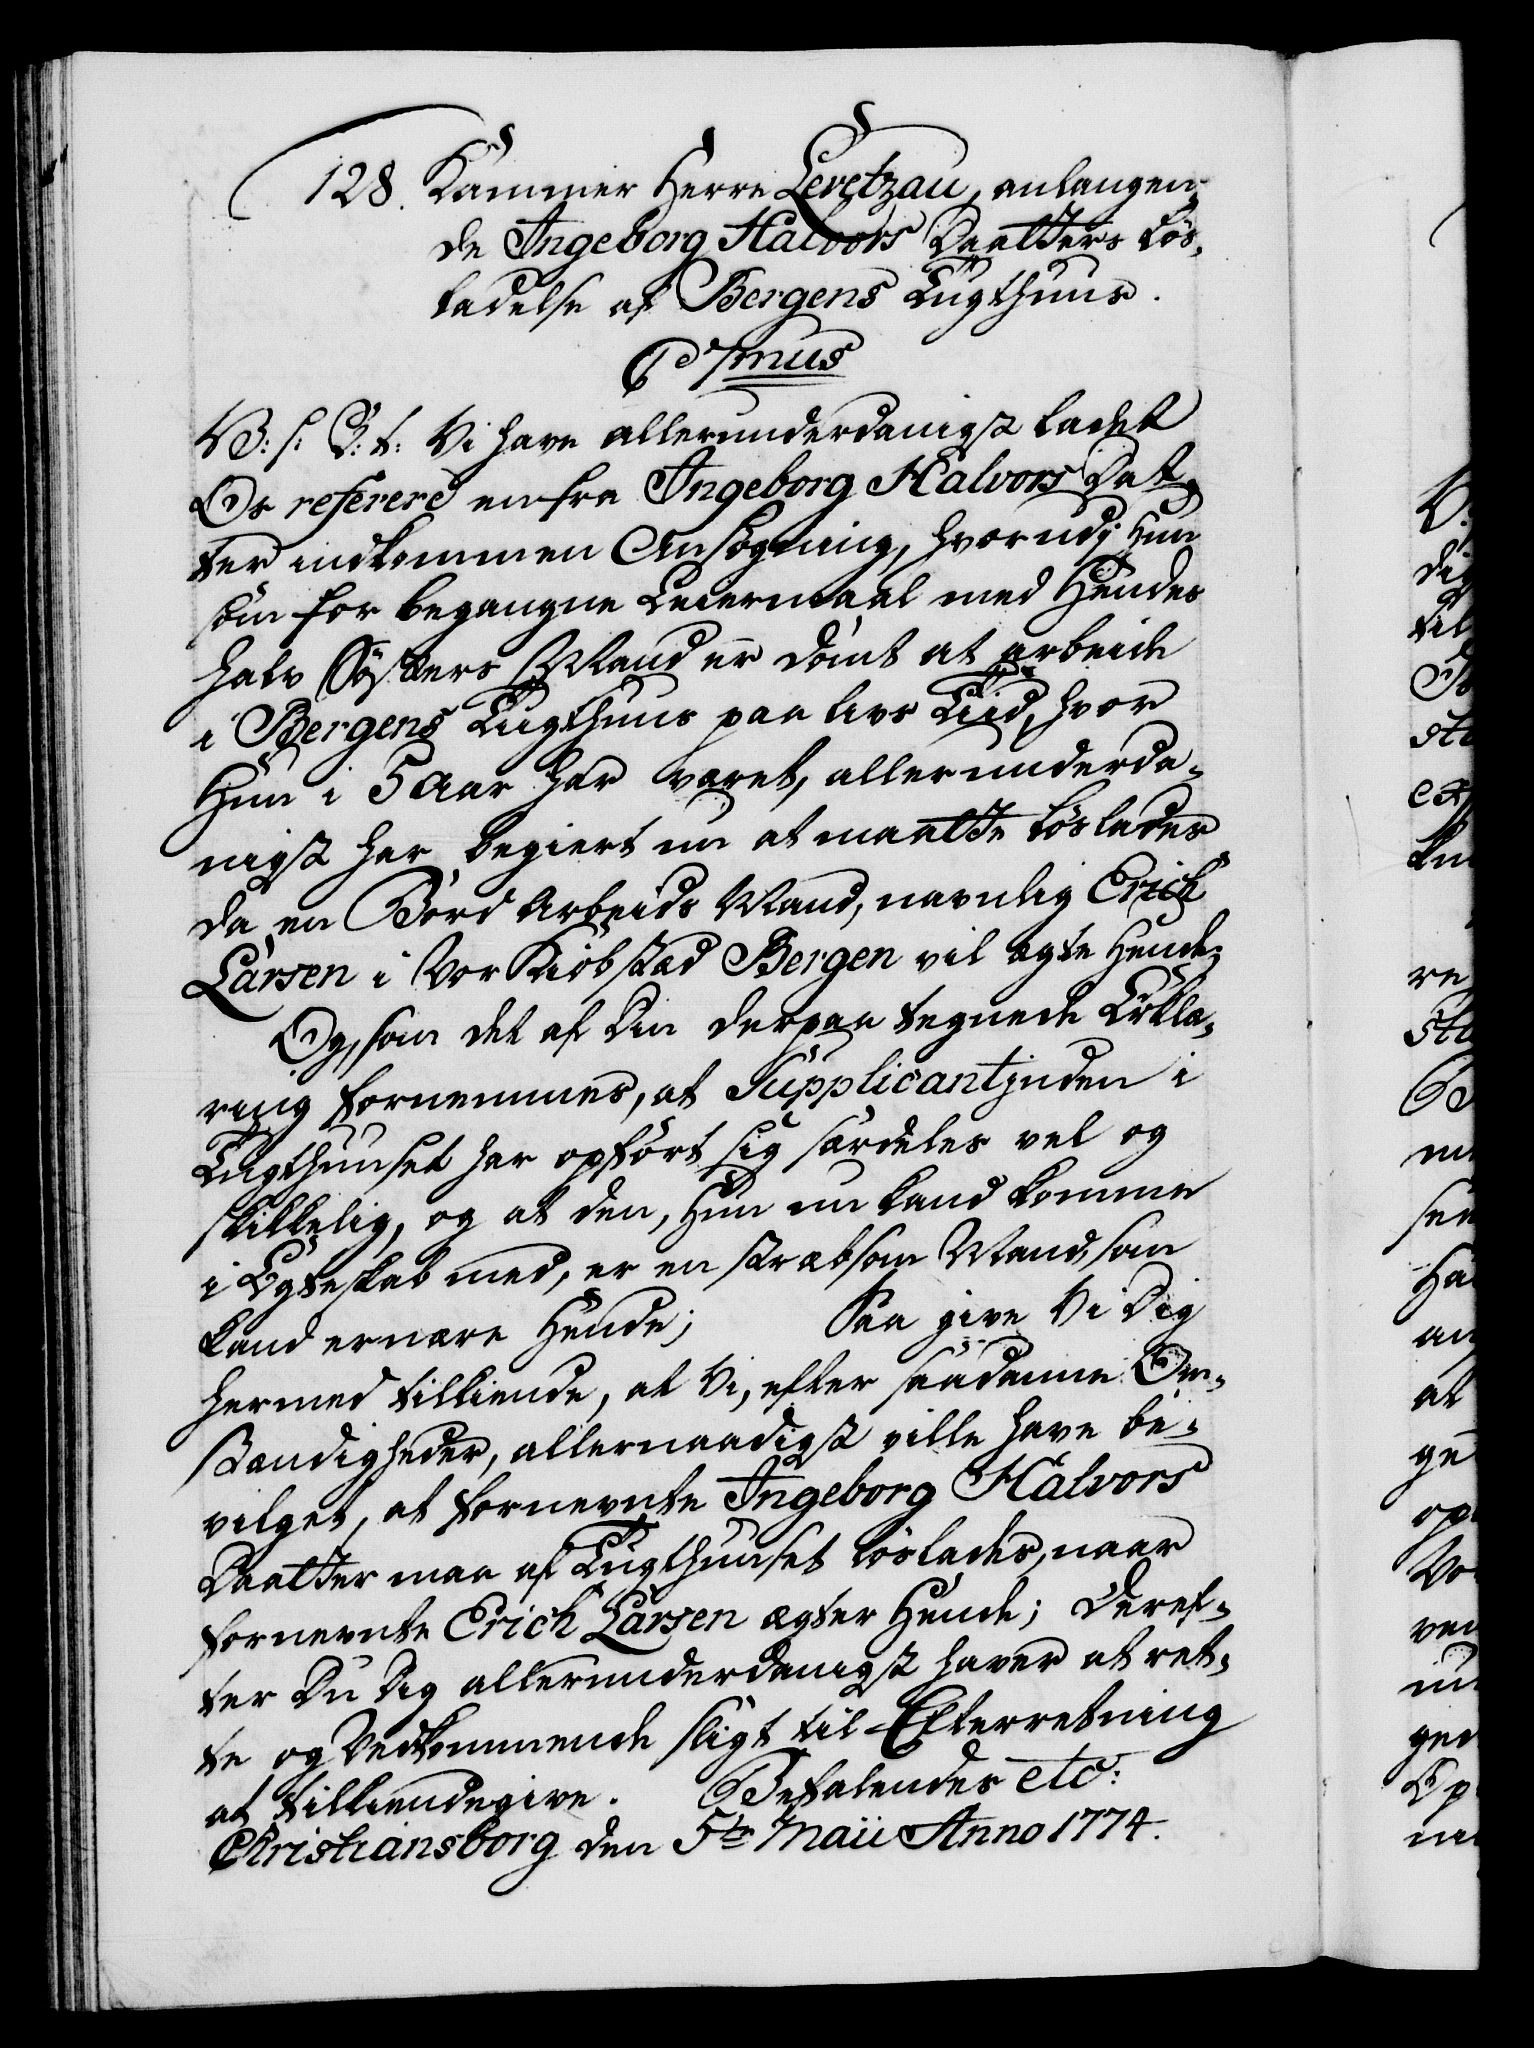 128. Kammer Herre Levetzau, anlangen-
de Ingeborg Halvors Daatters Løs-
ladelse af Bergens Tugthuus.
C 7mus
V: s: G: t: Vi have allerunderdanigst ladet
Os referere en fra Ingeborg Halvors Dat-
ter indkommen Ansøgning, hvorudj Hun
som for begangne Leiermaal med Hendes
halv Søsters Mand er dømt at arbeide
i Bergens Tugthuus paa livs Tiid, hvor
Hun i 5 Aar har været, allerunderda-
nigst har begiert nu at maatte løslades
da en Bord Arbeids Mand, navnlig Erich
Larsen i Vor Kiøbstad Bergen vil ægte Hende;
Og, som det af Din derpaa tegnede Erklæ-
ring fornemmes, at Supplicantinden i
Tugthuuset har opført sig særdeles vel og
skikkelig, og at den, Hun nu kand komme
i Egteskab med, er en stræbsom Mand, som
kand ernære Hende; Saa give Vi Dig
hermed tilkiende, at Vi, efter saadanne Om-
stændigheder, allernaadigst ville have be-
vilget, at fornevnte Ingeborg Halvors
Daatter maa af Tugthuuset løslades, naar
fornevnte Erich Larsen ægter Hende; Deref-
ter Du Dig allerunderdanigst haver at ret-
te og Vedkommende sligt til Efterretning
at tilkiendegive. Befalendes etc:
Christiansborg den 5te Maii Anno 1774.